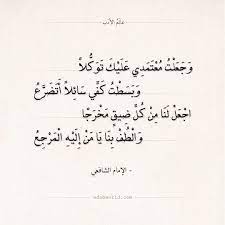 عالم الأدب
وَجَعَلْتُ مُعْتَمَدِي عَلَيْكَ تَوَكُّلاً
وَبَسَطْتُ كَفِّي سَائِلاً أَتَضَرَّعُ
اجْعَلْ لَنَا مِنْ كُلِّ ضِيقٍ مَخْرَجًا
وَالْطُفْ بِنَا يَا مَنْ إِلَيْهِ الْمَرْجِعُ
- الإمام الشافعي -
adabworld.com